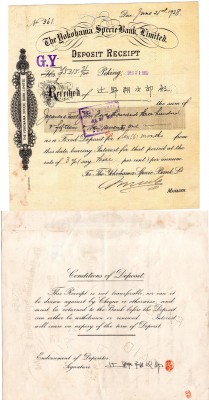 No 361
Due June 21st 1928
The Yokohama Specie Bank, Limited.
DEPOSIT RECEIPT
G.Y
Peking,
Received of 辻野朔次郎
the sum of
thousand three hundred
& fifteen
as a Fixed Deposit for Six (6) months from
this date bearing Interest for that period at the
rate of 3 % say Three per cent per annum
For The Yokohama Specie Bank Ld
MANAGER
Conditions of Deposit.
This Receipt is not transferable, nor can it
be drawn against by Cheque or otherwise, and
must be returned to the Bank before the Deposit
can either be withdrawn or renewed. Interest
will cease on expiry of the term of Deposit
Endorsement of Depositor
Signature 辻野朔次郎